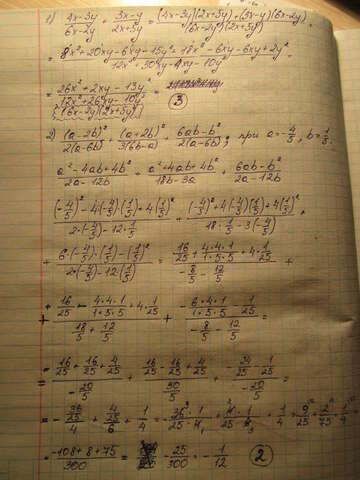 1) (4x-3y)/(6x-2y) + (3x-y)/(2x+5y) = ((4x-3y)(2x+5y)+(3x-y)(6x-2y))/((6x-2y)(2x+5y)) =
= (8x²+20xy-6xy-15y²+18x²-6xy-6xy+2y²)/(12x²+30xy-4xy-10y²) =
= (26x²+2xy-13y²)/(12x²+26xy-10y²)
(6x-2y)(2x+5y)
3
2) (a-2b)²/2(a-6b) + (a+2b)²/3(6b-a) + (6ab-b²)/2(a-6b), при a=-4/5, b=1/5.
(a²-4ab+4b²)/(2a-12b) + (a²+4ab+4b²)/(18b-3a) + (6ab-b²)/(2a-12b)
((-4/5)²-4(-4/5)(1/5)+4(1/5)²)/(2·(-4/5)-12·1/5) + ((-4/5)²+4(-4/5)(1/5)+4(1/5)²)/(18·1/5-3(-4/5)) +
+ (6·(-4/5)·(1/5)-(1/5)²)/(2·(-4/5)-12(1/5)) = (16/25+(4·4·1)/(1·5·5)+4·1/25)/(-8/5-12/5) +
+ (16/25-(4·4·1)/(1·5·5)+4·1/25)/(18/5+12/5) + (-(6·4·1)/(1·5·5)-1/25)/(-8/5-12/5) =
= (16/25+16/25+4/25)/(-20/5) + (16/25-16/25+4/25)/(30/5) + (-24/25-1/25)/(-20/5) =
= -(36/25)/4 + (4/25)/6 + 1/4 = -(36·1)/(25·4) + (4·1)/(25·6) + 1/4 = -9/25 + 2/75 + 1/4 =
= (-108+8+75)/300 = -25/300 = -1/12
2